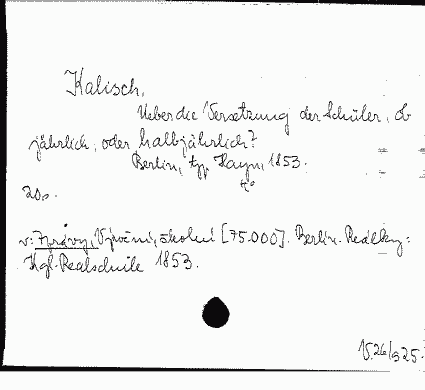 Kalisch,
Ueber die Versetzung der Schüler, ob
jährlich, oder halbjährlich?
Berlin, typ. Hayn, 1853.
4°
20 s.
v: Zprávy, Výroční, školní [75.000]. Berlin. Reálky:
Kgl. Realschule 1853.
15.26/525.